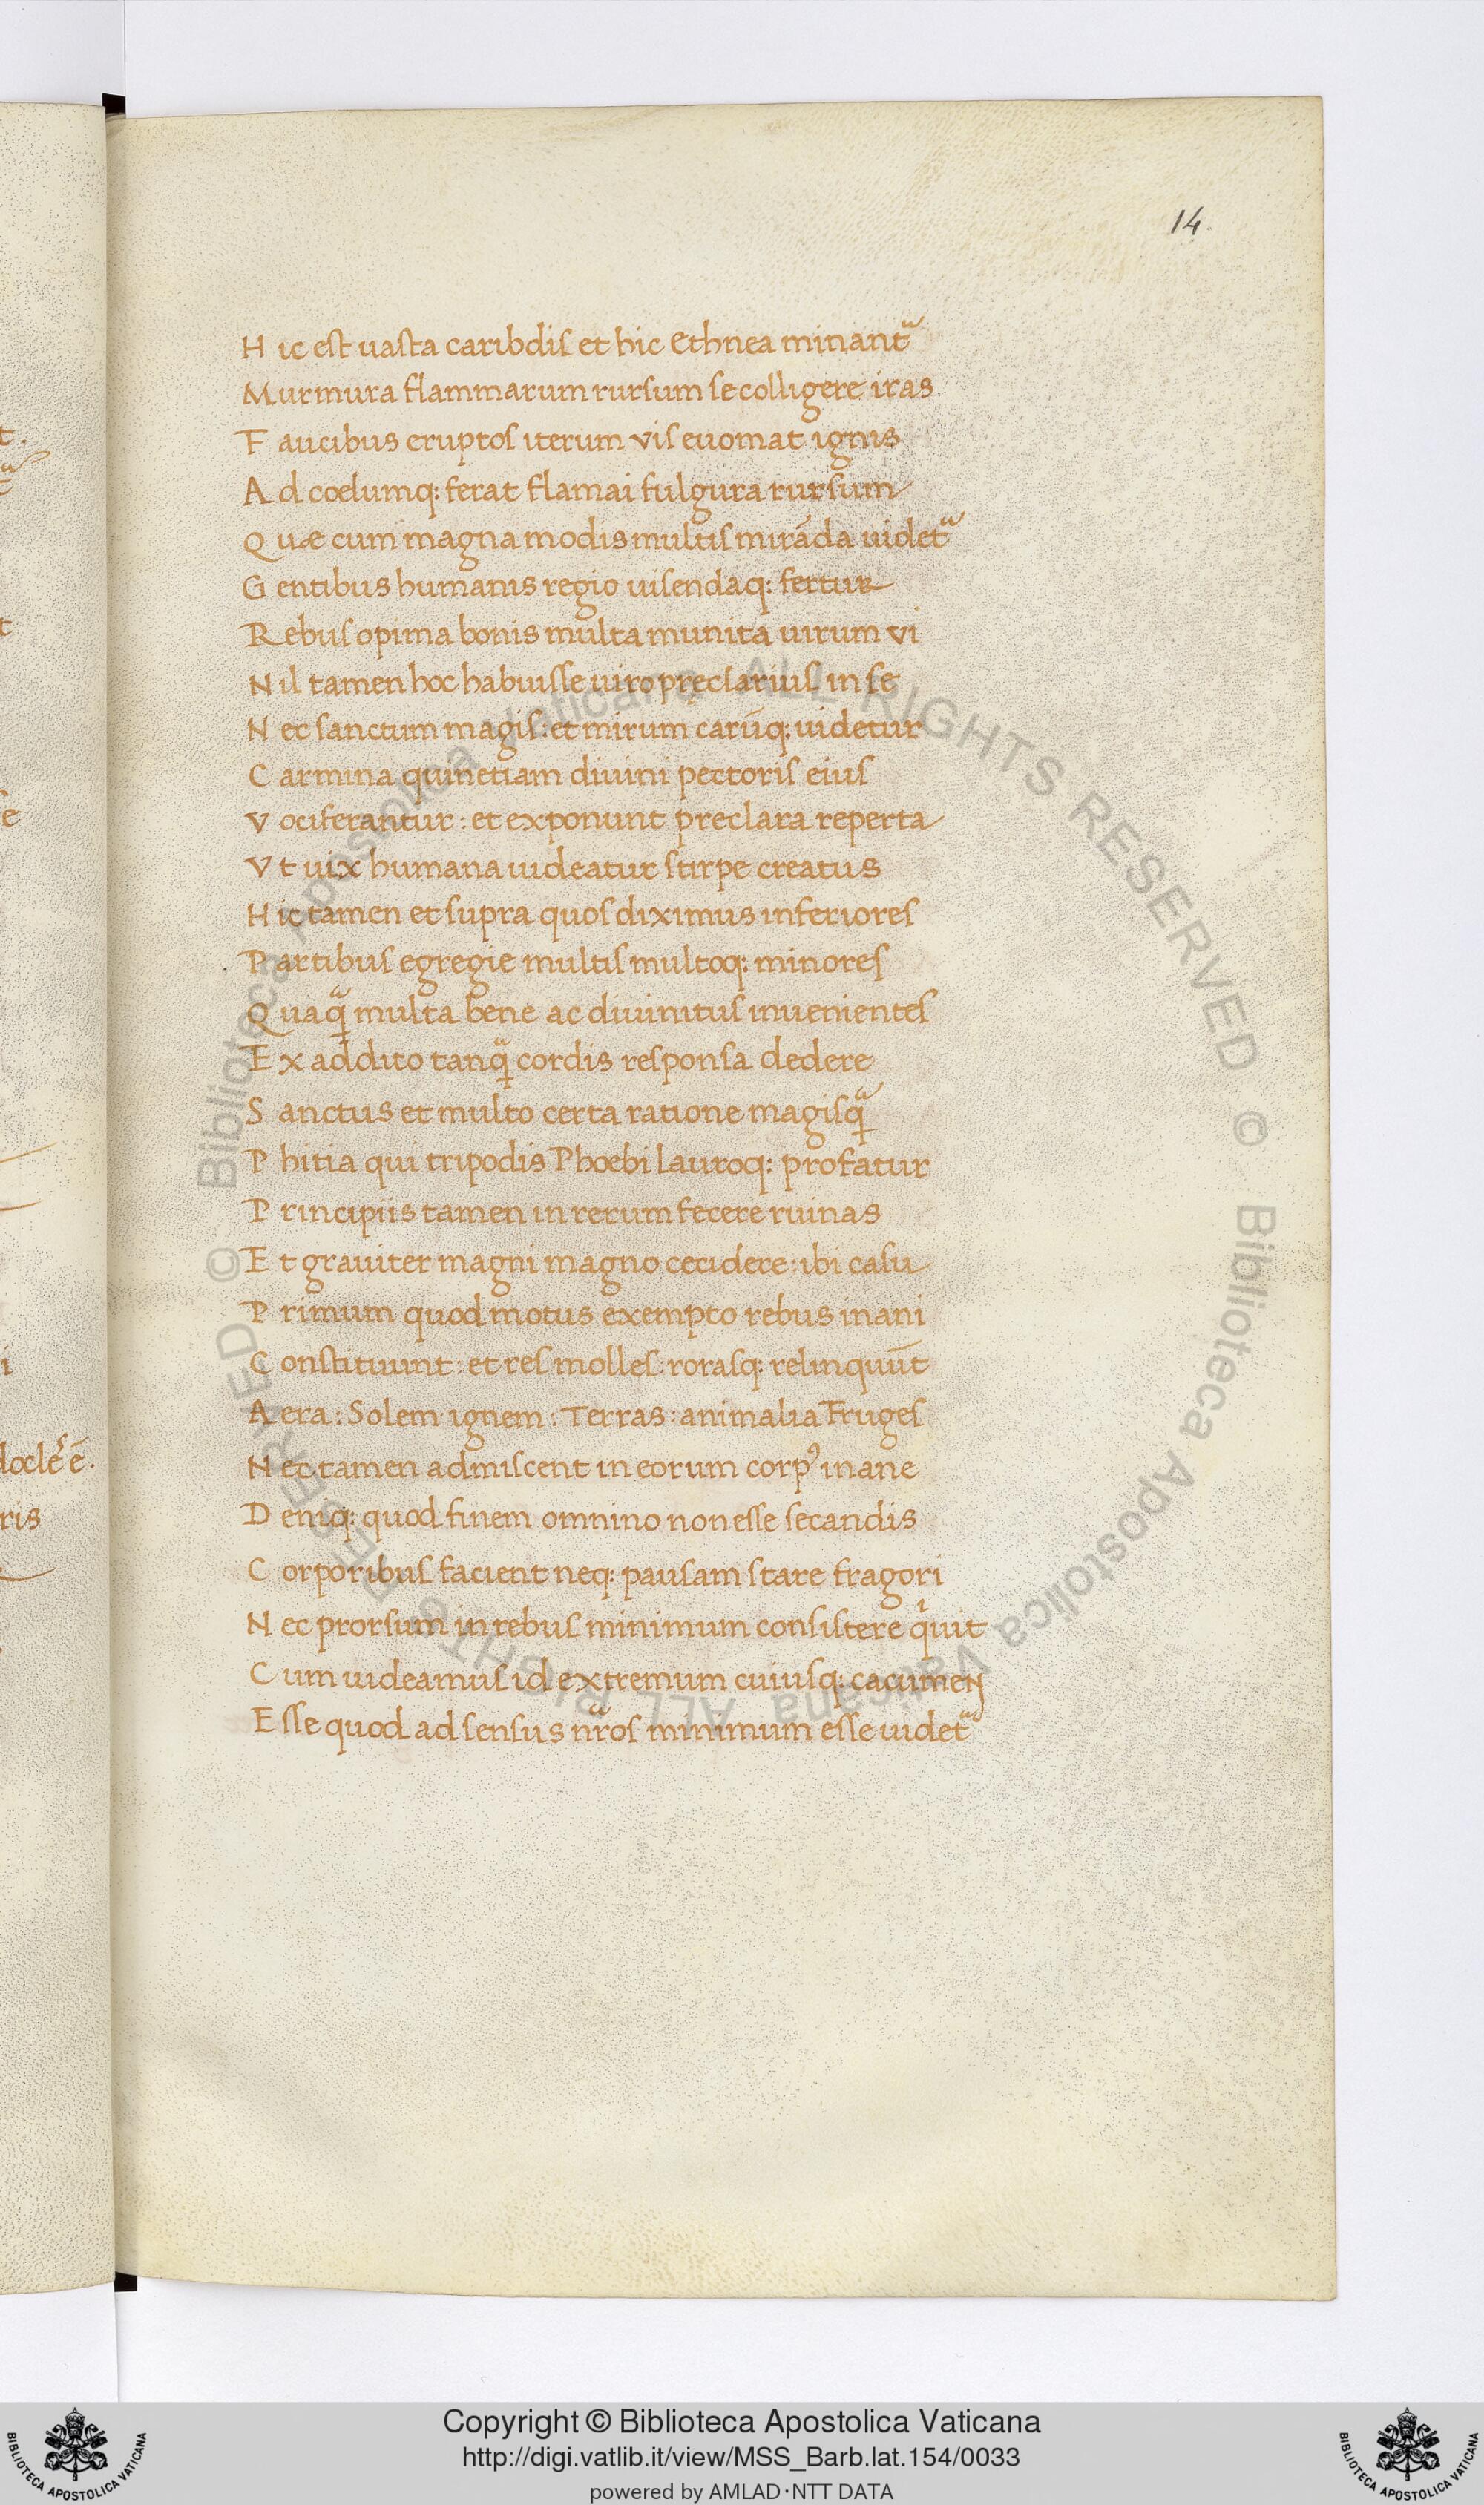 14
Hic est uasta caribdis et hic Ethnea minant᷑
Murmura flammarum rursum se colligere iras
Faucibus eruptos iterum vis euomat ignis
Ad coelumq: ferat flamai fulgura rursum
Quæ cum magna modis multis mirāda uidet᷑
Gentibus humanis regio uisendaq: fertur
Rebus opima bonis multa munita uirum vi
Nil tamen hoc habuisse uiro pręclarius in se
Nec sanctum magis: et mirum carūq: uidetur
Carmina quinetiam diuini pectoris eius
Vociferantur: et exponunt preclara reperta
Vt uix humana uideatur stirpe creatus
Hic tamen et supra quos diximus inferiores
Partibus egregie multis multoq: minores
Quaqᷓ multa bene ac diuinitus inuenientes
Ex addito tanqᷓ cordis responsa dedere
Sanctus et multo certa ratione magisqᷓ
Phitia qui tripodis Phoebi lauroq: profatur
Principiis tamen in rerum fecere ruinas
Et grauiter magni magno cecidere: ibi casu
Primum quod motus exempto rebus inani
Constituunt: et res molles: rorasq: relinquūt
Aera: Solem ignem: Terras: animalia Fruges
Nec tamen admiscent in eorum corpꝰ inane
Deniq: quod finem omnino non esse secandis
Corporibus facient neq: pausam stare fragori
Nec prorsum in rebus minimum consistere qͥuit
Cum uideamus id extremum cuiusq: cacumen
Esse quod ad sensus nr̃os minimum esse uidet᷑
© Biblioteca Apostolica Vaticana ALL RIGHTS RESERVED
© Biblioteca Apostolica Vaticana ALL RIGHTS RESERVED
Copyright © Biblioteca Apostolica Vaticana
http://digi.vatlib.it/view/MSS_Barb.lat.154/0033
powered by AMLAD·NTT DATA
BIBLIOTECA APOSTOLICA VATICANA
BIBLIOTECA APOSTOLICA VATICANA